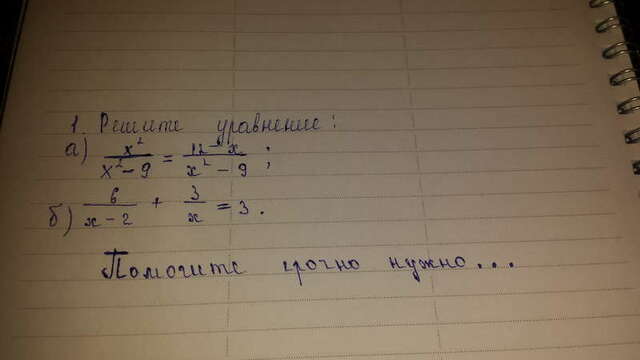 1. Решите уравнение:
а) x²/x²-9 = 12-x/x²-9 ;
б) 6/x-2 + 3/x = 3.
Помогите срочно нужно...